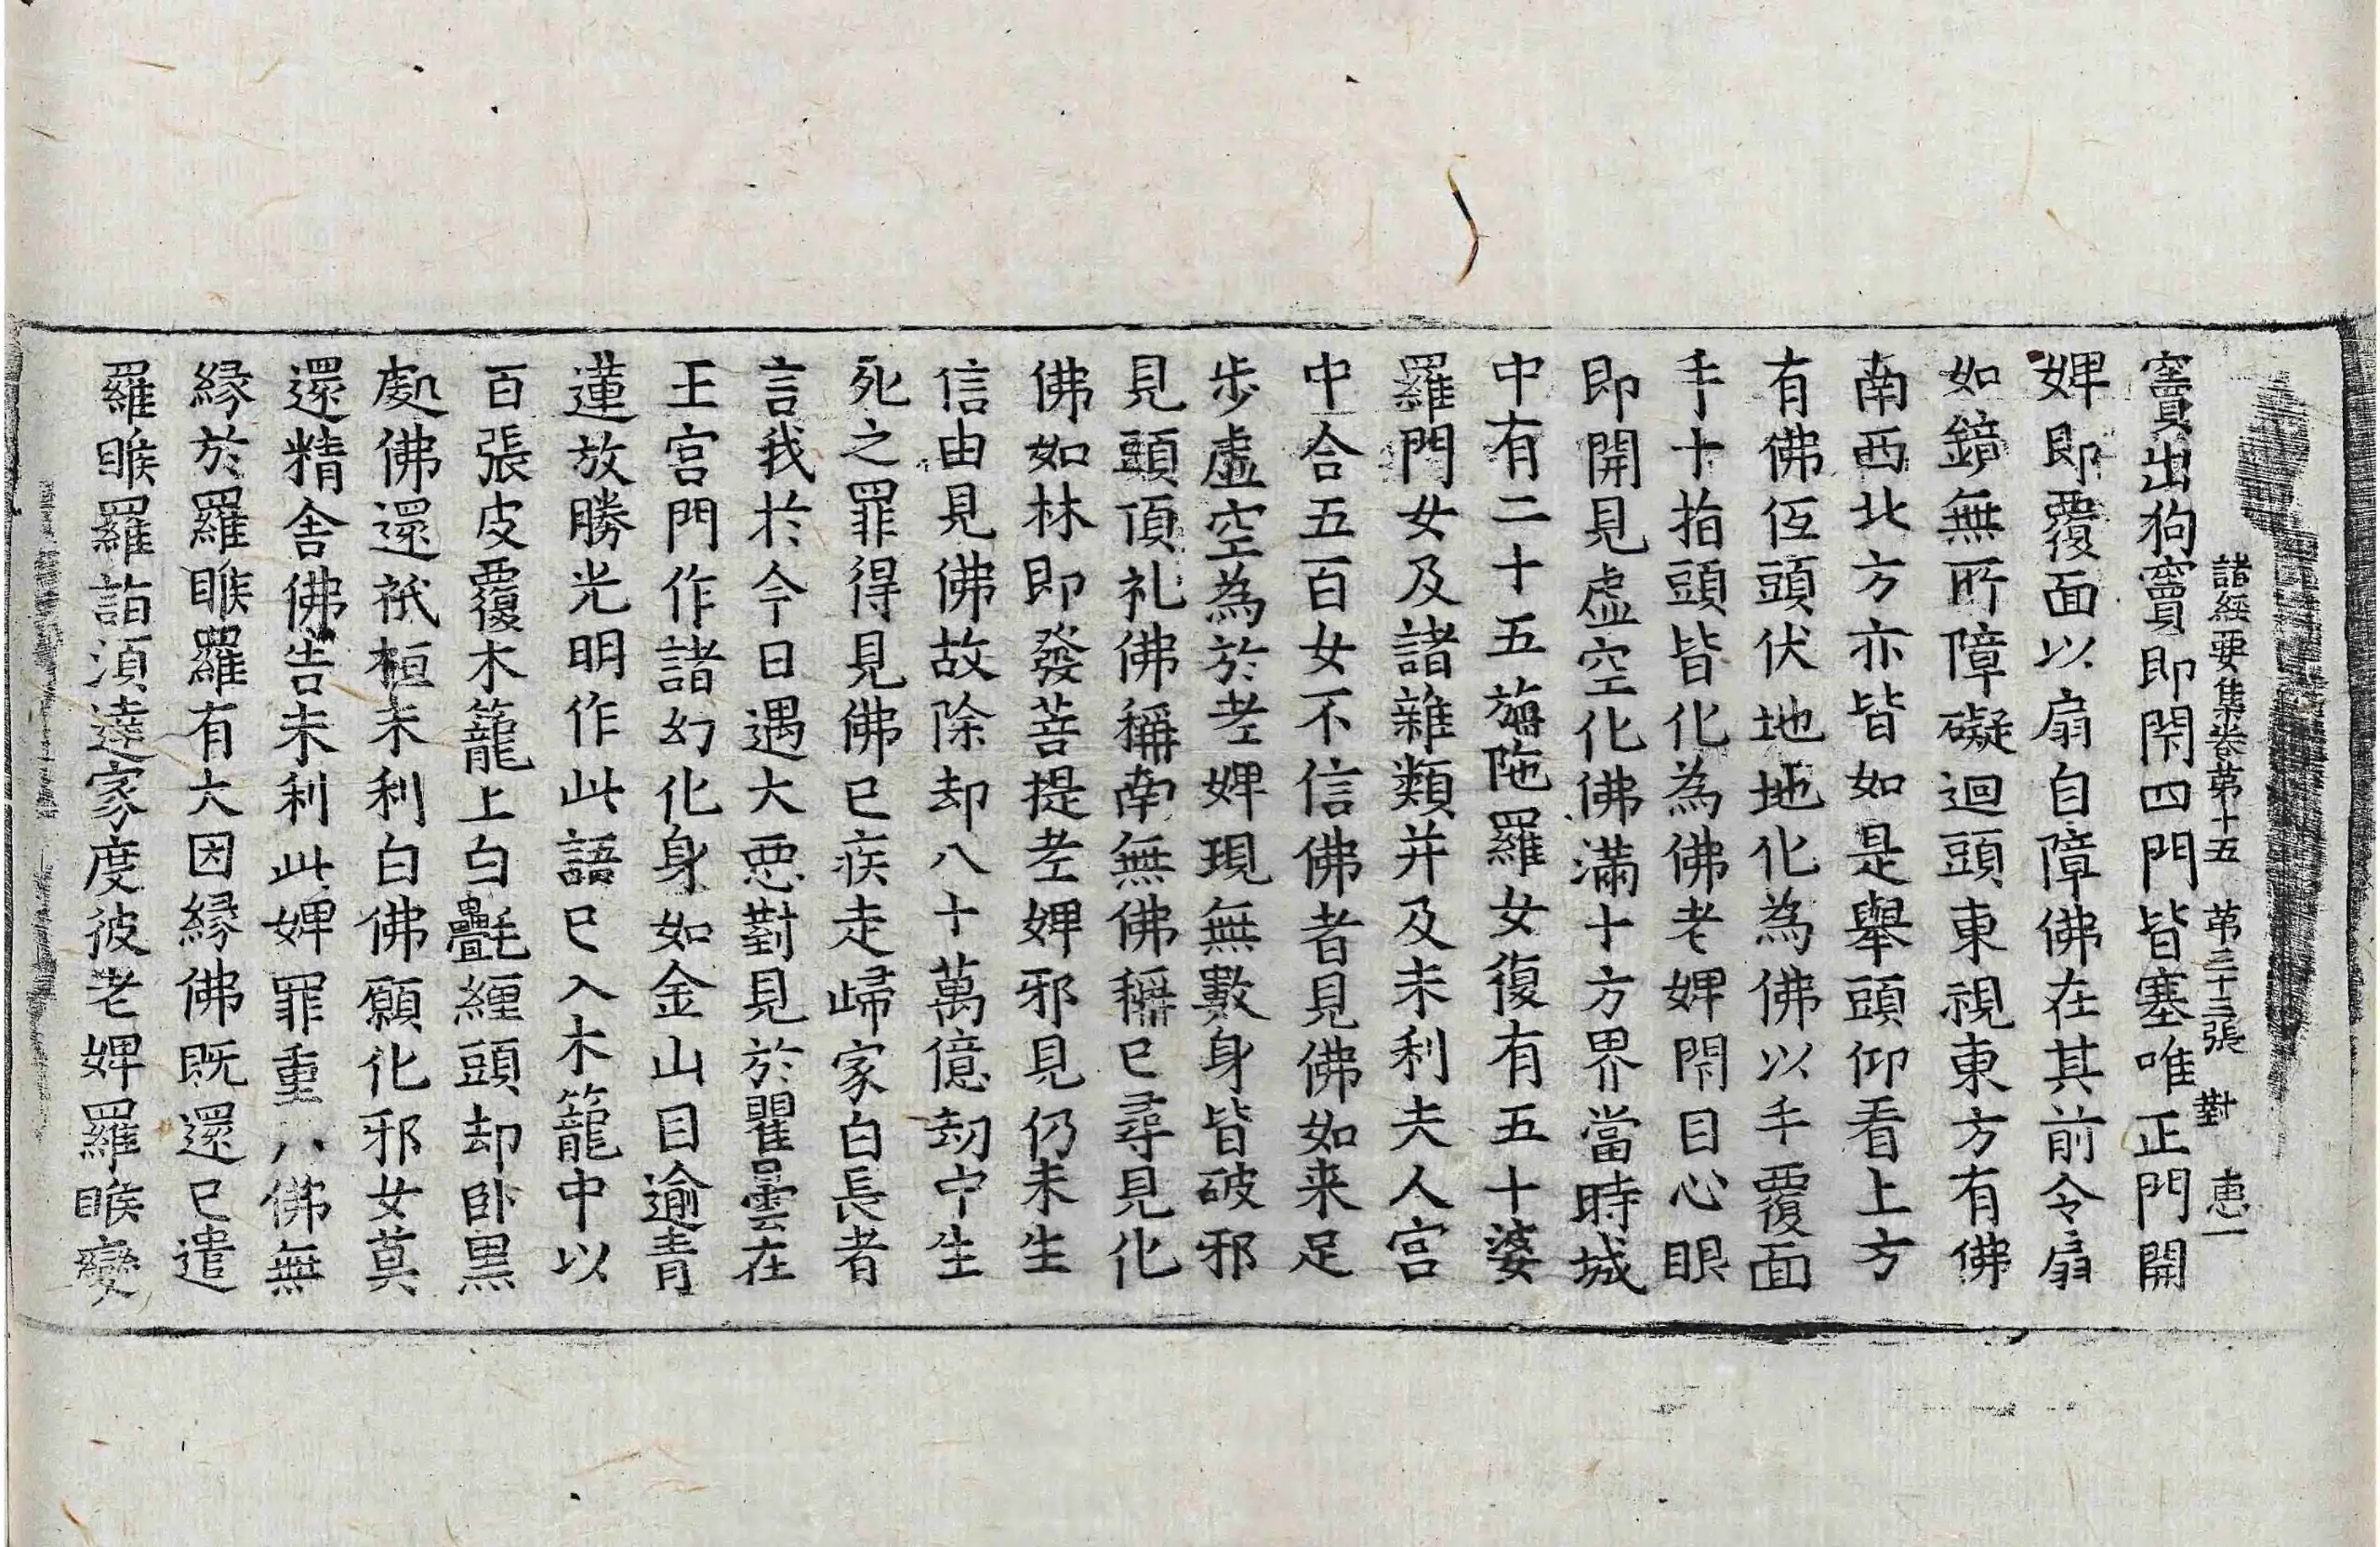 諸經要集卷第十五 第三十三張 對 恵一
竇出狗竇即閇四門皆塞唯正門開
婢即覆面以扇自障佛在其前令扇
如鏡無所障礙迴頭東視東方有佛
南西北方亦皆如是舉頭仰看上方
有佛低頭伏地地化為佛以手覆面
手十指頭皆化為佛老婢閇目心眼
即開見虛空化佛滿十方界當時城
中有二十五旃陁羅女復有五十婆
羅門女及諸雜類并及未利夫人宮
中合五百女不信佛者見佛如来足
步虛空為於老婢現無數身皆破邪
見頭頂礼佛稱南無佛稱已尋見化
佛如林即發菩提老婢邪見仍未生
信由見佛故除却八十萬億劫中生
死之罪得見佛已疾走歸家白長者
言我於今日遇大惡對見於瞿曇在
王宮門作諸幻化身如金山目逾青
蓮放勝光明作此語已入木籠中以
百張皮覆木籠上白㲲纏頭却卧黑
處佛還祇桓未利白佛願化邪女莫
還精舍佛告未利此婢罪重八佛無
緣於羅睺羅有大因緣佛既還已遣
羅睺羅詣須達家度彼老婢羅睺變